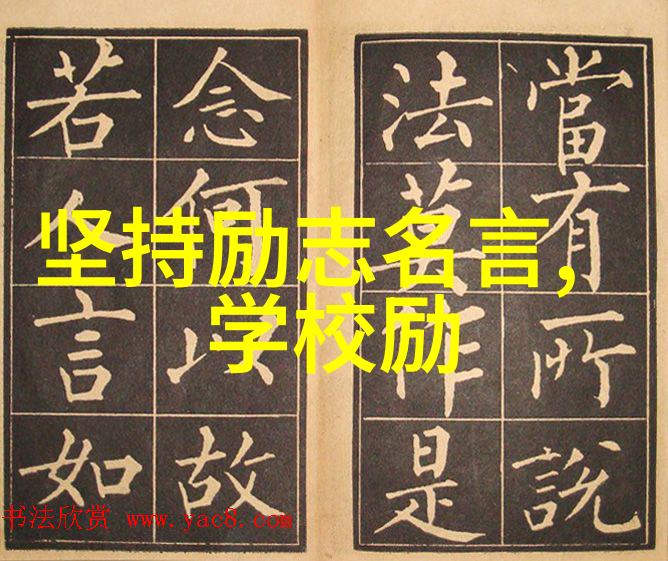 當有所說
法莫作是
念何以故
若人言如
坚持励志名言，
学校励
书法欣赏 www.yac8.com